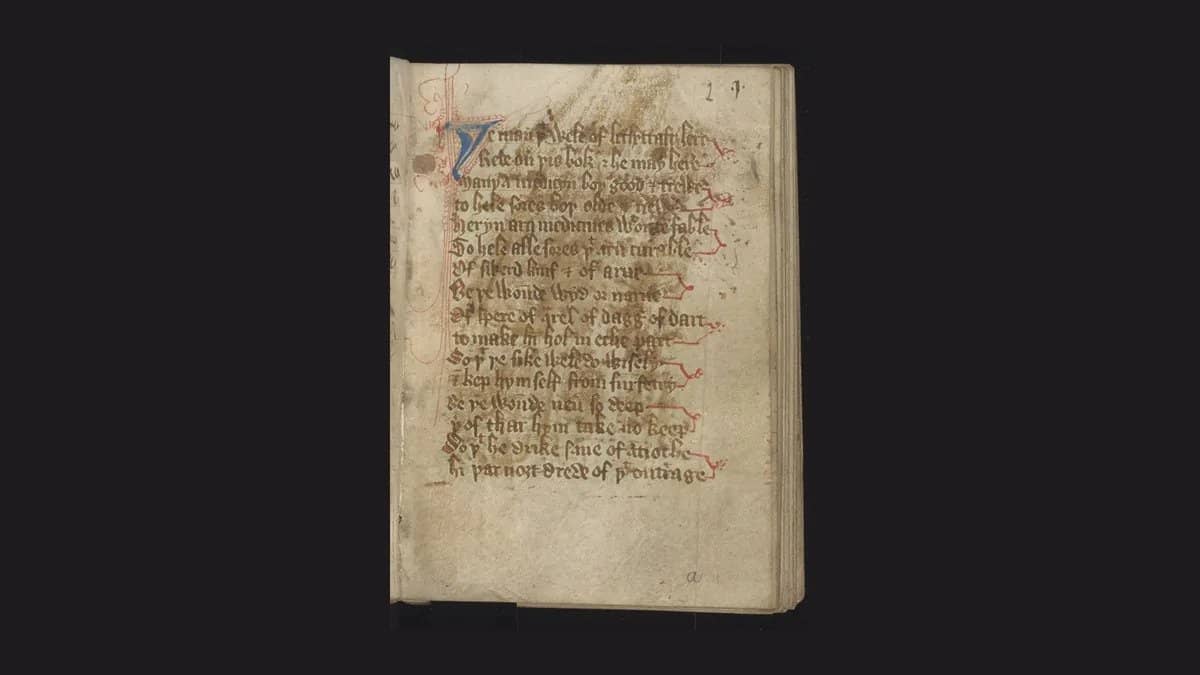 1
Ye man þt wele of lechecraft lere
Rede on þis bok & he may here
Many a medicyn boþ good & trewe
to hele sores boþ olde & newe
Heryn arn medicines
To hele alle sores þt arn curable
Of swerd knif & of arwe
Be þe wonde wyd or narwe
Of spere of qrel of dagg of dart
to make hī hol in eche part
So þt þe sike wele do wisely
& kep hym self from surfety
Be þe wonde neuer so deep
þer of thar hym take no keep
So þt he drīke saue of
hī þar nozt drede of
a